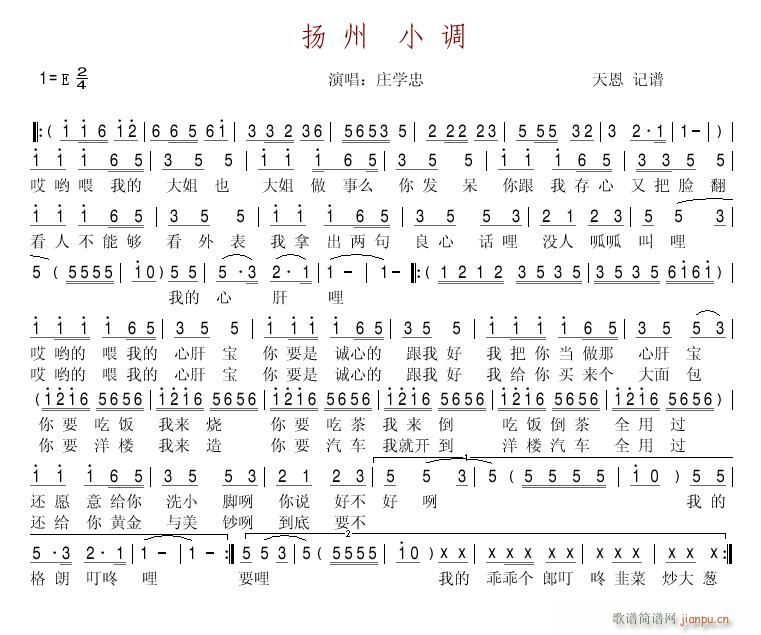 扬州 小调
1=E 2/4 演唱：庄学忠 天恩 记谱
‖:( 1 1 6 1 2 | 6 6 5 6 1 | 3 3 2 3 6 | 5 6 5 3 5 | 2 2 2 2 3 | 5 5 5 3 2 | 3 2·1 | 1 - ) |
1 1 1 6 5 | 3 5 5 | 1 1 1 6 5 | 3 5 5 | 1 1 1 6 5 | 3 3 5 5 |
哎哟喂我的 大姐也 大姐做事么 你发呆 你跟我存心 又把脸翻
1 1 1 6 5 | 3 5 5 | 1 1 6 5 | 3 5 5 | 2 1 2 2 | 5 5 3 |
看人不能够 看外表 我拿出两句 良心话哩 没人呱呱叫哩
5 ( 5 5 5 5 | 1 0 ) 5 5 | 5·3 2·1 | 1 - | 1 - ‖:( 1 2 1 2 3 5 3 5 | 3 5 3 5 6 1 6 1 ) |
我的心肝哩
1 1 1 6 5 | 3 5 5 | 1 1 1 6 5 | 3 5 5 | 1 1 1 6 5 | 3 5 5 3 |
哎哟的喂我的心肝宝 你要是诚心的 跟我好 我把你当做那 心肝宝
哎哟的喂我的心肝宝 你要是诚心的 跟我好 我给你买来个 大面包
( 1 2 1 6 5 6 5 6 | 1 2 1 6 5 6 5 6 | 1 2 1 6 5 6 5 6 | 1 2 1 6 5 6 5 6 | 1 2 1 6 5 6 5 6 | 1 2 1 6 5 6 5 6 )
你要吃饭 我来烧 你要吃茶 我来倒 吃饭倒茶 全用过
你要洋楼 我来造 你要汽车 我就开到 洋楼汽车 全用过
1 1 1 6 5 | 3 5 5 5 | 2 1 2 3 | 1 5 5 3 | 5 ( 5 5 5 5 | 1 0 ) 5 5 |
还愿意给你 洗小脚咧 你说好不好咧 我的
还给你黄金 与美钞咧 到底要不
5·3 2·1 | 1 - | 1 - :‖ 2 5 5 3 | 5 ( 5 5 5 5 | 1 0 ) x x | x x x x x | x x x x :‖
格朗叮咚哩 要哩 我的乖乖个郎叮咚韭菜炒大葱
歌谱简谱网 jianpu.cn